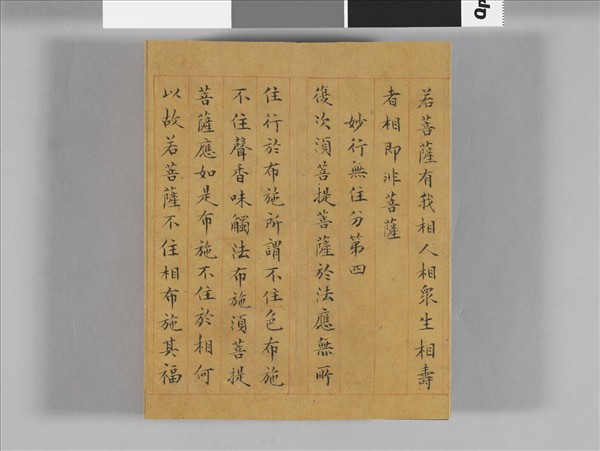 若菩薩有我相人相衆生相壽
者相即非菩薩
妙行無住分第四
復次須菩提菩薩於法應無所
住行於布施所謂不住色布施
不住聲香味觸法布施須菩提
菩薩應如是布施不住於相何
以故若菩薩不住相布施其福
Op